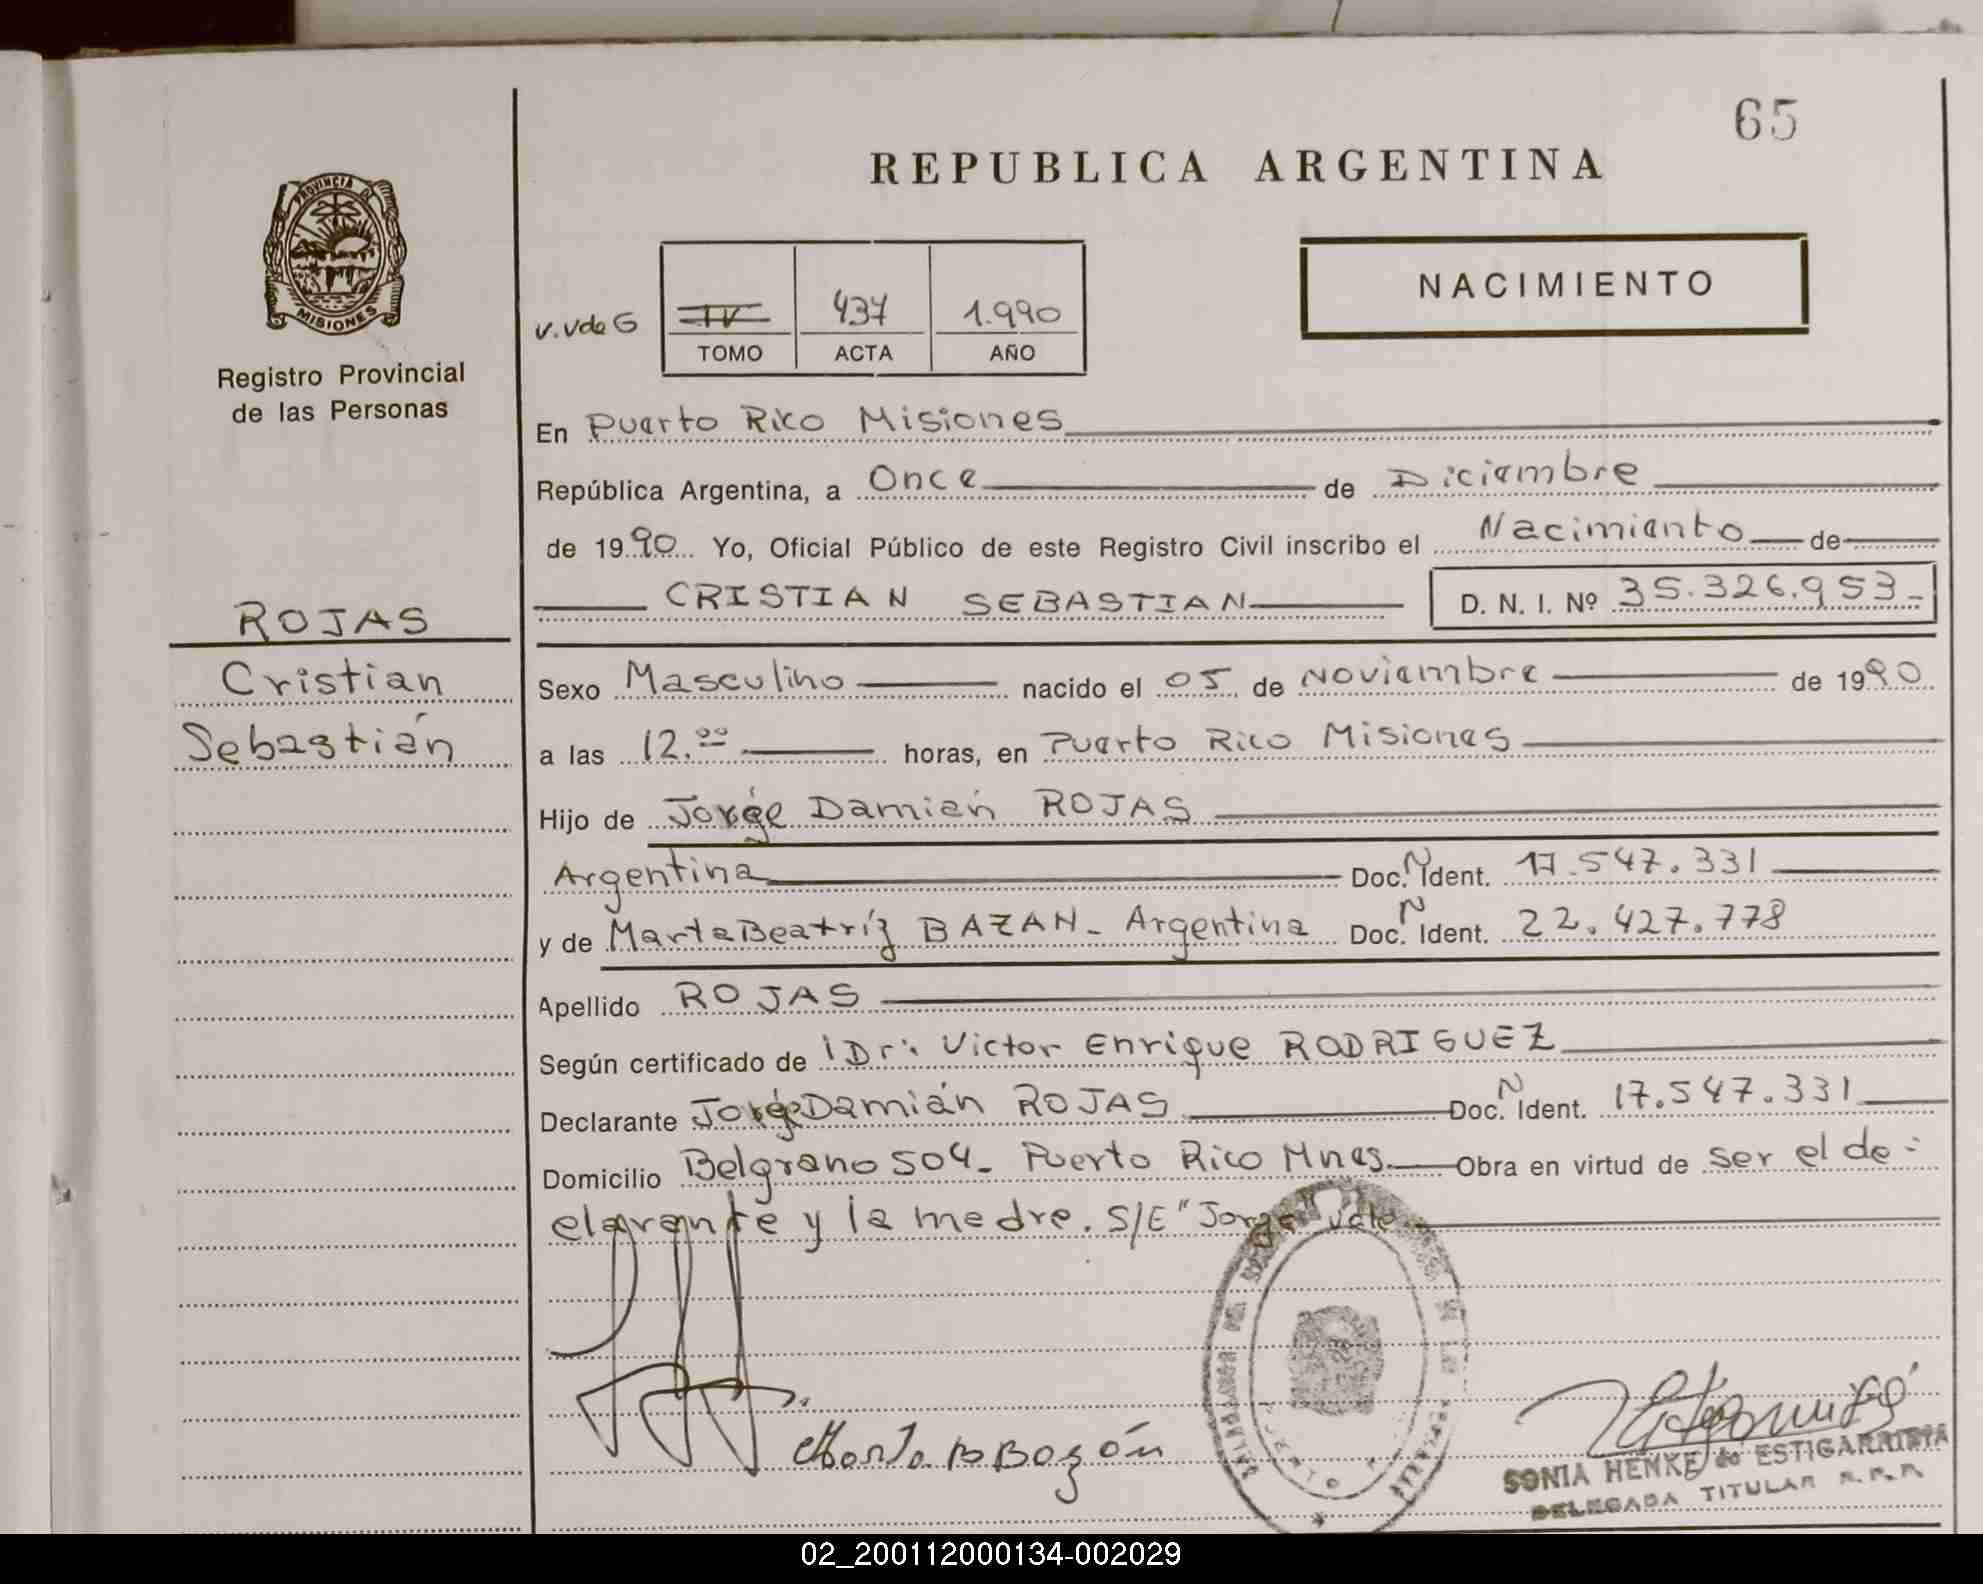 65
REPUBLICA ARGENTINA
PROVINCIA DE
MISIONES
NACIMIENTO
v.vde G
IV 437 1.990
TOMO ACTA AÑO
Registro Provincial
de las Personas
En Puerto Rico Misiones
República Argentina, a Once de Diciembre
de 1990 Yo, Oficial Público de este Registro Civil inscribo el Nacimiento de
CRISTIAN SEBASTIAN D. N. I. Nº 35.326.953-
ROJAS
Cristian
Sebastián
Sexo Masculino nacido el 05 de Noviembre de 1990
a las 12.00 horas, en Puerto Rico Misiones
Hijo de Jorge Damián ROJAS
Argentina Doc. N Ident. 17.547.331
y de Marta Beatríz BAZAN - Argentina Doc. N Ident. 22.427.778
Apellido ROJAS
Según certificado de Dr: Victor Enrique RODRIGUEZ
Declarante Jorge Damián ROJAS Doc. N Ident. 17.547.331
Domicilio Belgrano 504 - Puerto Rico Mnes. Obra en virtud de ser el de-
clarante y la madre. S/E "Jorge" vale
Marta B Bazán
SONIA HENKE de ESTIGARRIBIA
DELEGADA TITULAR R. P. P.
02_200112000134-002029